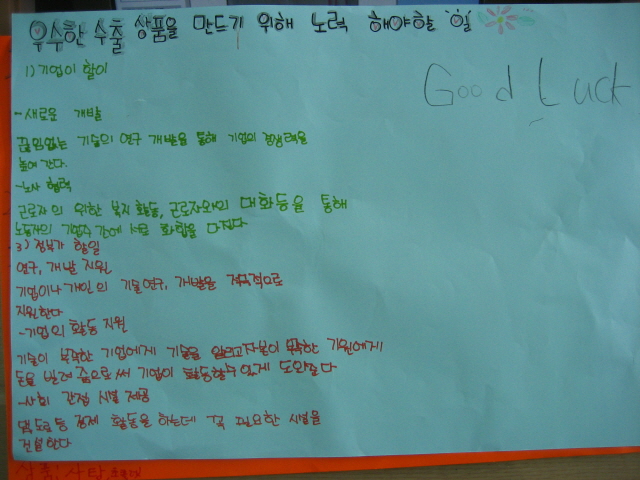 우수한 수출 상품을 만드기 위해 노력 해야할 일
1) 기업이 할이
Good Luck
-새로운 개발
끊임없는 기술의 연구 개발을 통해 기업의 경쟁력을
높여 간다.
-노사 협력
근로자의 위한 복지 활동, 근로자와의 대화등을 통해
노동자의 기업주 간에 서로 화합을 다진다
3) 정부가 할일
연구, 개발 지원
기업이나 개인의 기술연구, 개발을 적극적으로
지원한다
-기업의 활동 지원
기술이 부족한 기업에게 기술을 알리고 자본이 부족한 기원에게
돈을 빌려 줌으로써 기업이 활동할수 있게 도와준다
-사회 간접 시설 제공
도로 등 경제 활동을 하는데 꼭 필요한 시설을
건설한다
사탕